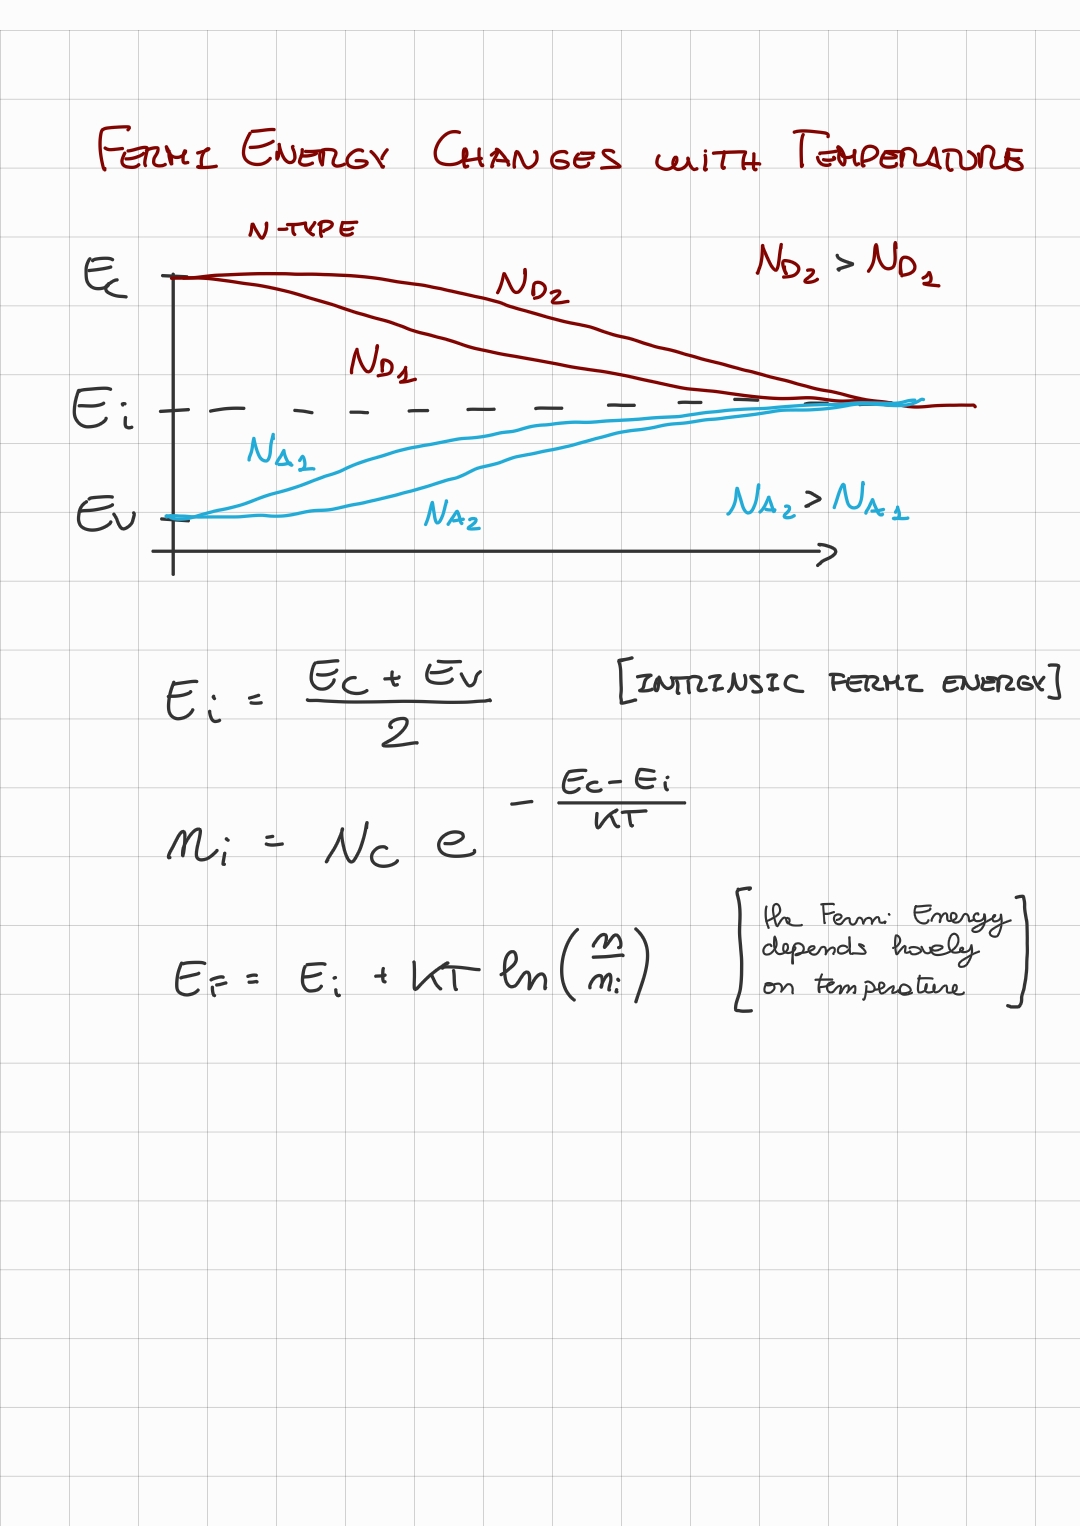 FERMI ENERGY CHANGES WITH TEMPERATURE
N-TYPE
E_C
N_D2
N_D2 > N_D1
N_D1
E_i
N_A1
E_V
N_A2
N_A2 > N_A1
E_i = (E_C + E_V) / 2 [INTRINSIC FERMI ENERGY]
n_i = N_C e^(- (E_C - E_i) / KT)
E_F = E_i + KT ln(n / n_i)
[the Fermi Energy
depends
on temperature]